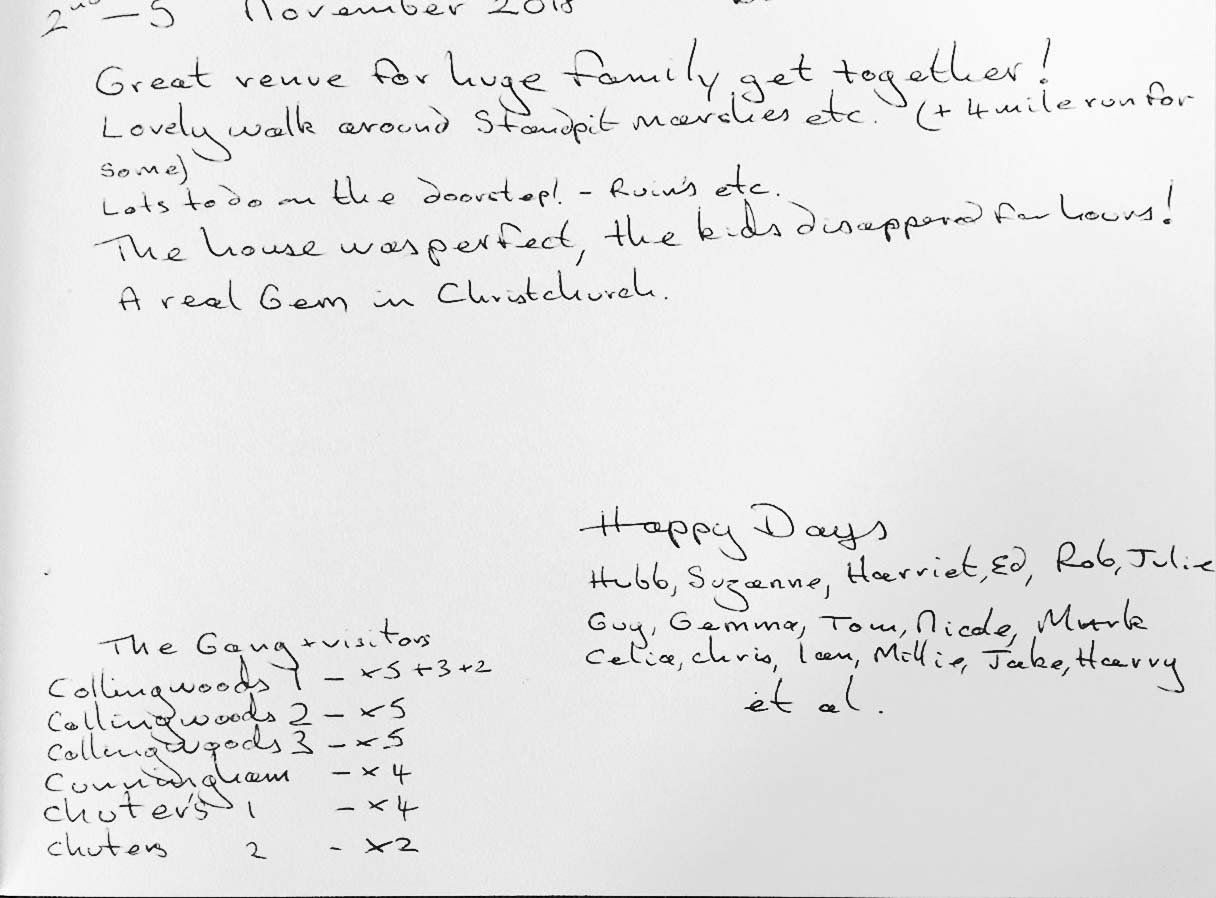 2nd - 5 November 2018
Great venue for huge family get together!
Lovely walk around Standpit marshes etc. (+ 4 mile run for
some)
Lots to do on the doorstep! - Ruin's etc.
The house was perfect, the kids disappered for hours!
A real Gem in Christchurch.
Happy Days
Hubb, Suzanne, Harriet, Ed, Rob, Julie
Guy, Gemma, Tom, Nicole, Mark
Celia, Chris, Ian, Millie, Jake, Harry
et al.
The Gang + visitors
Collingwoods 1 - x5 +3 +2
Collingwoods 2 - x5
Collingwoods 3 - x5
Cunningham - x4
Chuter's 1 - x4
Chuters 2 - x2